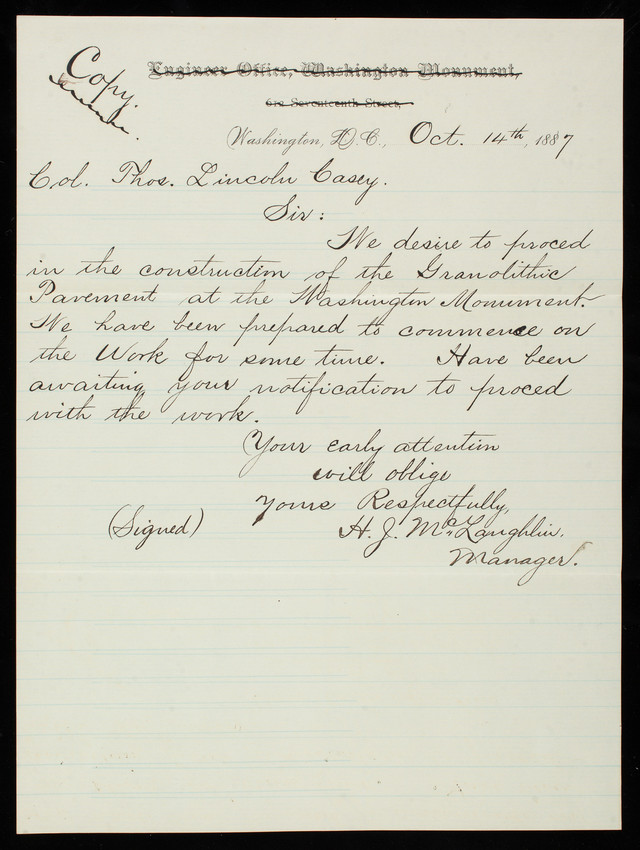 Copy.
Engineer Office, Washington Monument,
Seventeenth Street,
Washington, D.C., Oct. 14th, 1887
Col. Thos. Lincoln Casey.
Sir:
We desire to proced
in the construction of the Granolithic
Pavement at the Washington Monument.
We have been prepared to commence on
the Work for some time. Have been
awaiting your notification to proced
with the work.
Your early attention
will oblige
Yours Respectfully,
(Signed) H. J. McLaughlin.
Manager.